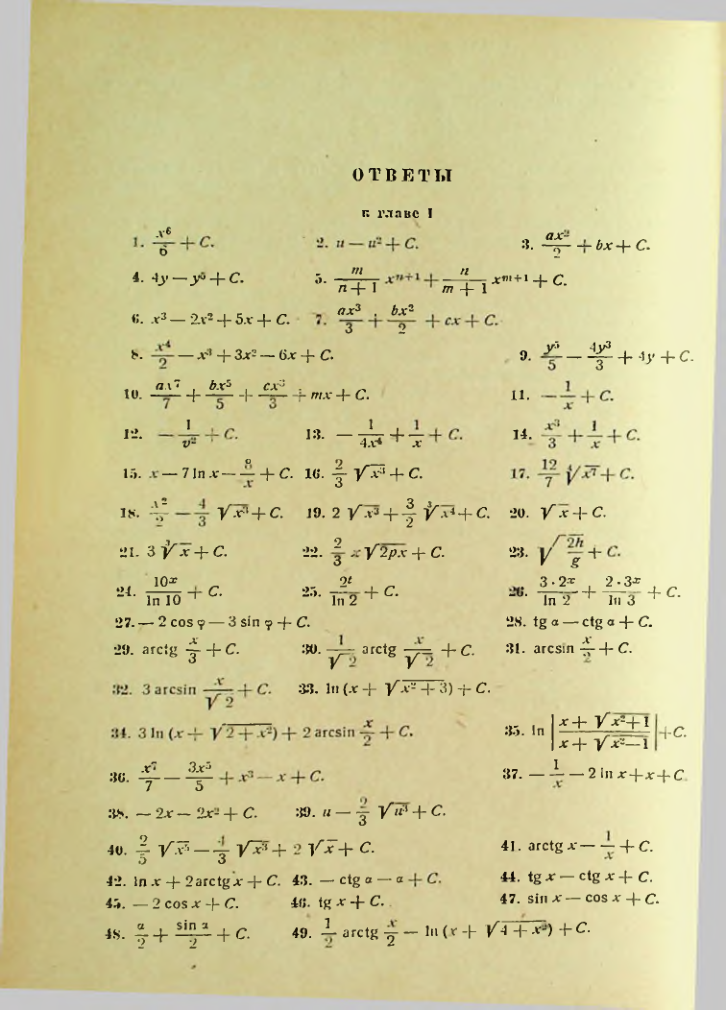 ОТВЕТЫ
к главе I
1. x⁶/6 + C. 2. u — u² + C. 3. ax²/2 + bx + C.
4. 4y — y⁵ + C. 5. m/(n + 1) xⁿ⁺¹ + n/(m + 1) xᵐ⁺¹ + C.
6. x³ — 2x² + 5x + C. 7. ax³/3 + bx²/2 + cx + C.
8. x⁴/2 — x³ + 3x² — 6x + C. 9. y⁵/5 — 4y³/3 + 4y + C.
10. ax⁷/7 + bx⁵/5 + cx³/3 + mx + C. 11. — 1/x + C.
12. — 1/v² + C. 13. — 1/4x⁴ + 1/x + C. 14. x³/3 + 1/x + C.
15. x — 7 ln x — 8/x + C. 16. 2/3 √x³ + C. 17. 12/7 ⁴√x⁷ + C.
18. x²/2 — 4/3 √x³ + C. 19. 2 √x³ + 3/2 ³√x⁴ + C. 20. √x + C.
21. 3 ³√x + C. 22. 2/3 x √2px + C. 23. √(2h/g) + C.
24. 10ˣ/ln 10 + C. 25. 2ᵗ/ln 2 + C. 26. 3·2ˣ/ln 2 + 2·3ˣ/ln 3 + C.
27. — 2 cos φ — 3 sin φ + C. 28. tg α — ctg α + C.
29. arctg x/3 + C. 30. 1/√2 arctg x/√2 + C. 31. arcsin x/2 + C.
32. 3 arcsin x/√2 + C. 33. ln (x + √(x² + 3)) + C.
34. 3 ln (x + √(2 + x²)) + 2 arcsin x/2 + C. 35. ln |(x + √(x²+1))/(x + √(x²—1))| + C.
36. x⁷/7 — 3x⁵/5 + x³ — x + C. 37. — 1/x — 2 ln x + x + C.
38. — 2x — 2x² + C. 39. u — 2/3 √u³ + C.
40. 2/5 √x⁵ — 4/3 √x³ + 2 √x + C. 41. arctg x — 1/x + C.
42. ln x + 2 arctg x + C. 43. — ctg α — α + C. 44. tg x — ctg x + C.
45. — 2 cos x + C. 46. tg x + C. 47. sin x — cos x + C.
48. α/2 + sin α/2 + C. 49. 1/2 arctg x/2 — ln (x + √(4 + x²)) + C.